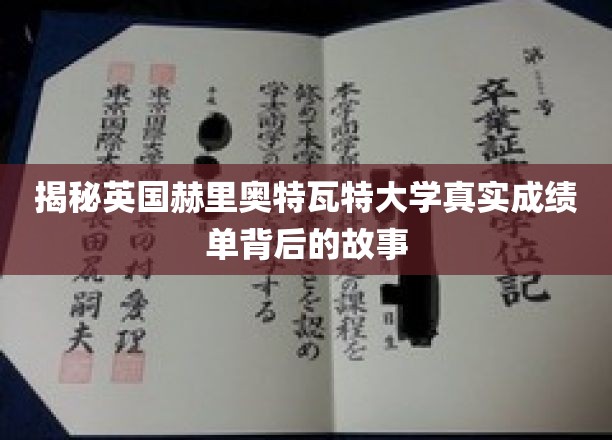 揭秘英国赫里奥特瓦特大学真实成绩
单背后的故事
第 号
卒業証 学位記
本学商学部 定の課程を
修めて本学 ことを認め
学士(商学)の学 する
平成
東京国際大学 田村愛理
東京国際大 長田尻嗣夫